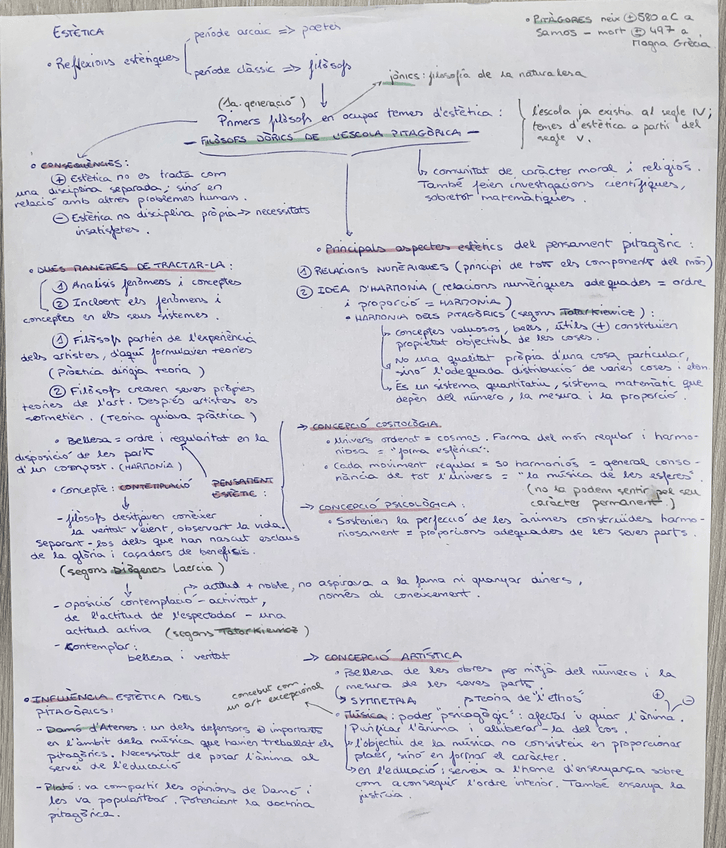 ESTÈTICA
• Reflexions estètiques
període arcaic => poetes
període clàssic => filòsofs
• PITÀGORES neix (+) 580 a.C a
Samos - mort (±) 497 a
Magna Grècia
jònics: filosofia de la naturalesa
(1a. generació)
Primers filòsofs en ocupar temes d'estètica:
- FILÒSOFS DÒRICS DE L'ESCOLA PITAGÒRICA -
l'escola ja existia al segle IV;
temes d'estètica a partir del
segle V.
comunitat de caràcter moral i religiós.
També feien investigacions científiques,
sobretot matemàtiques.
• CONSEQÜÈNCIES:
(+) Estètica no es tracta com
una disciplina separada, sinó en
relació amb altres problemes humans.
(-) Estètica no disciplina pròpia -> necessitats
insatisfetes.
• DUES MANERES DE TRACTAR-LA:
(1) Analisis fenòmens i conceptes
(2) Incloent els fenòmens i
conceptes en els seus sistemes.
(1) Filòsofs partien de l'experiència
dels artistes, d'aquí formulaven teories
(Pràctica dirigia teoria)
(2) Filòsofs creaven seves pròpies
teories de l'art. Després artistes es
sotmetien. (Teoria guiava pràctica)
• Bellesa = ordre i regularitat en la
disposició de les parts
d'un compost. (HARMONIA)
• Concepte: CONTEMPLACIÓ
PENSAMENT
ESTÈTIC:
- filòsofs desitjaven conèixer
la veritat vivent, observant la vida.
Separant-los dels que han nascut esclaus
de la glòria i caçadors de beneficis.
(segons Diògenes Laercia)
actitud + noble, no aspirava a la fama ni guanyar diners,
només al coneixement.
- oposició contemplació - activitat,
de l'actitud de l'espectador - una
actitud activa (segons Tatarkiewicz)
- Contemplar:
bellesa i veritat
• INFLUÈNCIA ESTÈTICA DELS
PITAGÒRICS:
- Damó d'Atenes: un dels defensors (+) importants
en l'àmbit dels música que havien treballat els
pitagòrics. Necessitat de posar l'ànima al
servei de l'educació
- Plató: va compartir les opinions de Damó i
les va popularitzar. Potenciant la doctrina
pitagòrica.
• Principals aspectes estètics del pensament pitagòric:
(1) RELACIONS NUMÈRIQUES (principi de tots els components del món)
(2) IDEA D'HARMONIA (relacions numèriques adequades = ordre
i proporció = HARMONIA)
• HARMONIA DELS PITAGÒRICS (segons Tatarkiewicz):
conceptes valuosos, bells, útils (+) constituïen
propietat objectiva de les coses.
No una qualitat pròpia d'una cosa particular,
sinó l'adequada distribució de varies coses i elem.
És un sistema quantitatiu, sistema matemàtic que
depèn del número, la mesura i la proporció.
-> CONCEPCIÓ COSMOLÒGIA
• Univers ordenat = cosmos. Forma del món regular i harmo-
niosa = "forma esfèrica".
• Cada moviment regular = so harmoniós = general conso-
nància de tot l'univers = "la música de les esferes".
(no la podem sentir pel seu
caràcter permanent.)
-> CONCEPCIÓ PSICOLÒGICA:
• Sostenien la perfecció de les ànimes construïdes harmo-
niosament = proporcions adequades de les seves parts.
-> CONCEPCIÓ ARTÍSTICA
• Bellesa de les obres per mitjà del número i la
mesura de les seves parts.
-> SYMMETRIA
teoria de "l'ethos"
concebut com
un art excepcional
• Música: poder "psicagògic": afectar i guiar l'ànima.
(+) (-)
Purificar l'ànima i alliberar-la del cos.
L'objectiu de la música no consisteix en proporcionar
plaer, sinó en formar el caràcter.
en l'educació: serveix a l'home d'ensenyança sobre
com aconseguir l'ordre interior. També ensenya la
justícia.